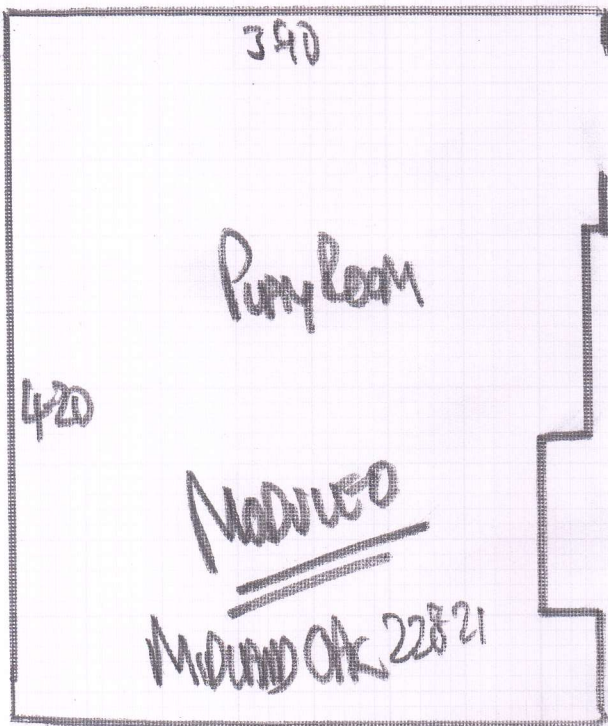 3.90
Play Room
4.20
MODULEO
MIDLAND OAK 22821